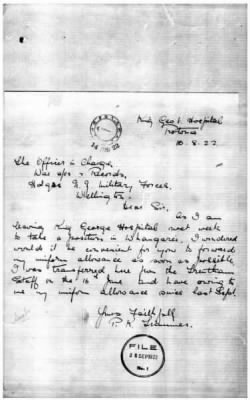 King Geo V. Hospital
Rotorua
10.8.22
The Officer in Charge,
War a/cs & Records,
Hdqrs N.Z. Military Forces.
Wellington.
Dear Sir,
As I am
leaving King George Hospital next week
to take a position in Whangarei, I wondered
would it be convenient for you to forward
my uniform allowance as soon as possible
I was transferred here from the Trentham
Staff on the 16th June and have owing to
me my uniform allowance since last Sept.
Yours Faithfully
P. K.
FILE
28 SEP 1922
No. 1